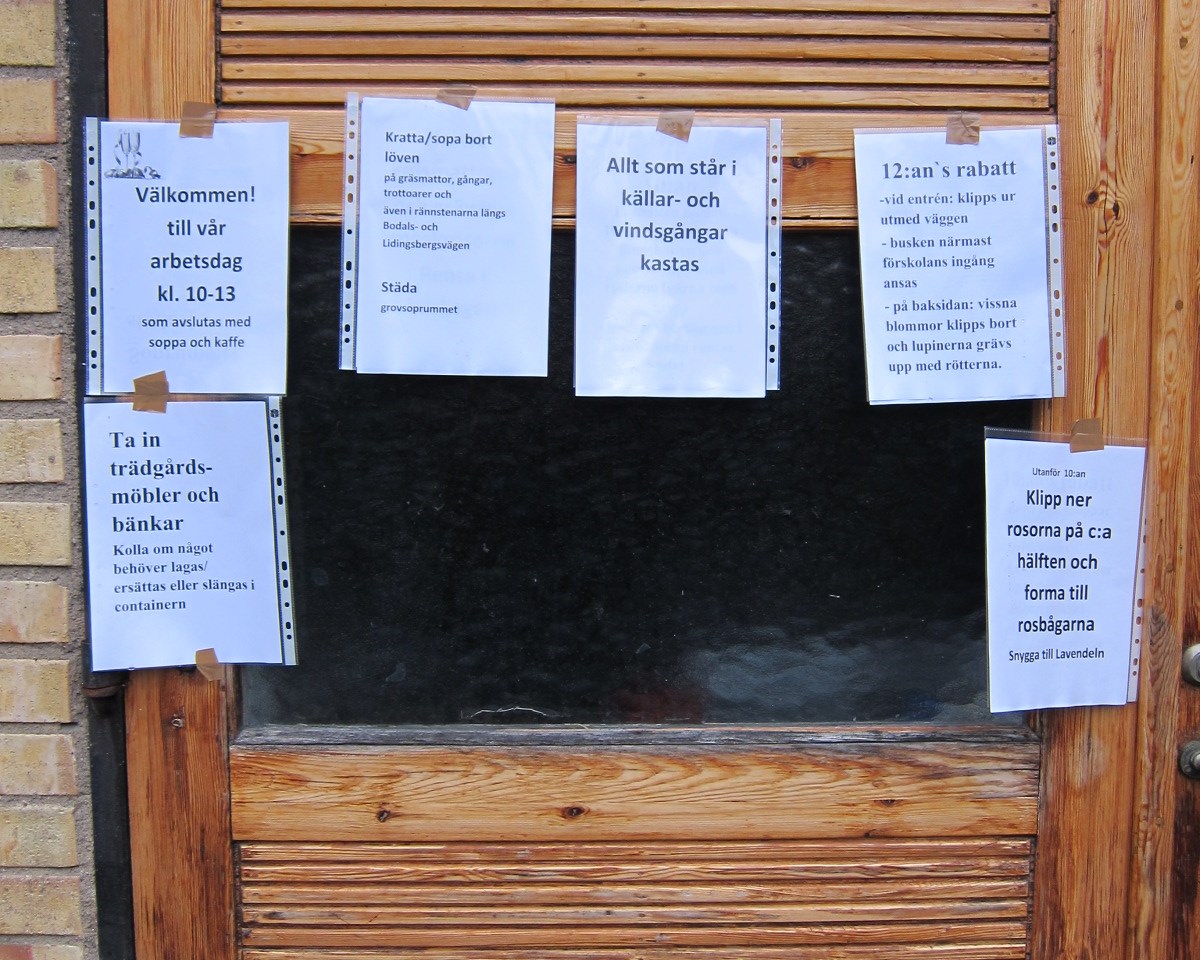 Välkommen!
till vår
arbetsdag
kl. 10-13
som avslutas med
soppa och kaffe
Kratta/sopa bort
löven
på gräsmattor, gångar,
trottoarer och
även i rännstenarna längs
Bodals- och
Lidingsbergsvägen
Städa
grovsoprummet
Allt som står i
källar- och
vindsgångar
kastas
12:an`s rabatt
-vid entrén: klipps ur
utmed väggen
- busken närmast
förskolans ingång
ansas
- på baksidan: vissna
blommor klipps bort
och lupinerna grävs
upp med rötterna.
Ta in
trädgårds-
möbler och
bänkar
Kolla om något
behöver lagas/
ersättas eller slängas i
containern
Utanför 10:an
Klipp ner
rosorna på c:a
hälften och
forma till
rosbågarna
Snygga till Lavendeln